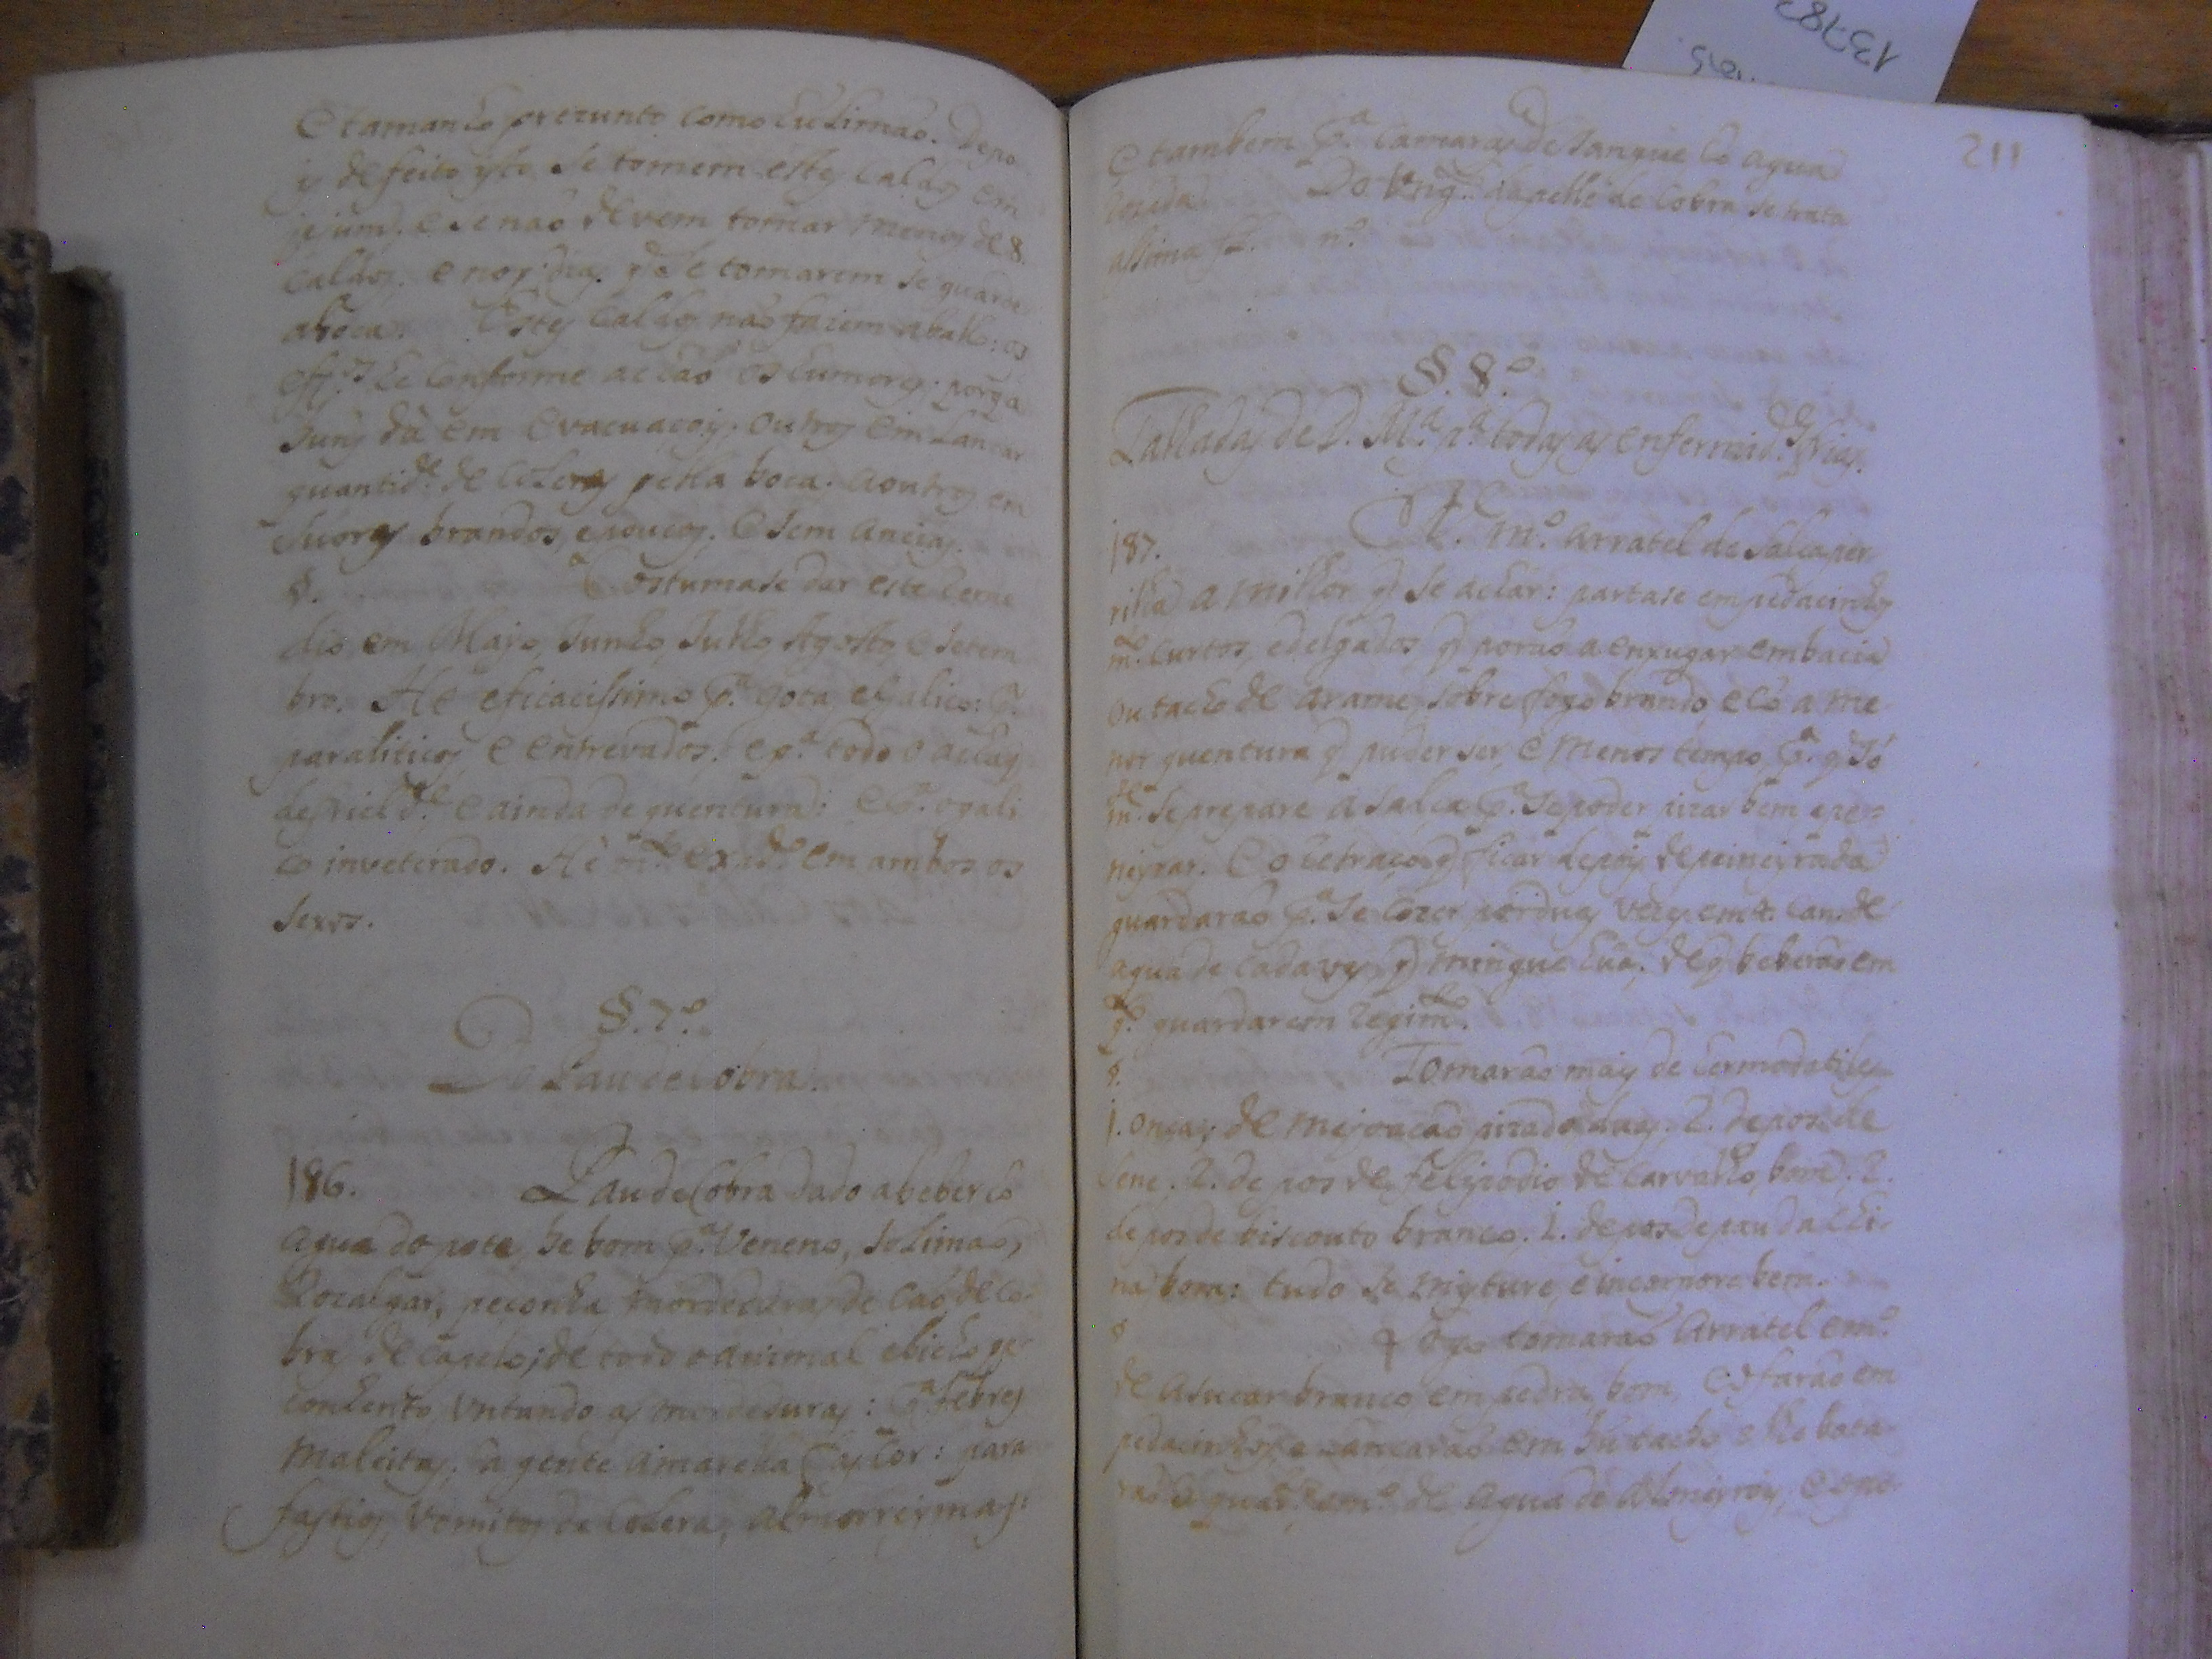 e tamanho prezunto como hũ Limão. Depo
is de feito isto se tomem estes caldos em
jejum, e se não devem tomar menos de 8.
caldos. e nos dias q̃ se tomarem se guarde
a boca. Estes caldos não fazem aballo: os
eff.os he conforme achão os humores: porq̃ a
huns dà em evacuaçois, outros em Lançar
quantid.e de coleras pella boca. a outros em
suores brandos, e poucos, e sem ancias.
§. Costumase dar este Reme
dio em Mayo, Junho, Julho Agosto, e Setem
bro. He eficacissimo p.a gota, e galico: p.a
paraliticos, e entrevados. e p.a todo o achaq̃
de frield.e, e ainda de quentura: e p.a o gali
co inveterado. He m.to em ambos os
sexos.
§. 7.º
Do Pau de Cobra.
186. Pau de Cobra dado a beber cõ
agua do pote, he bom p.a Veneno, solimao,
Rozalgar, peçonha, mordedura de Cão, de Co-
bra de capelo; de todo o animal e bicho pe
conhento, untando as mordeduras: p.a febres
Maleitas. a gente amarella : para
fastios, vomitos de Colera, almorreymas:
211
e tambem p.a camaras de sangue cõ agua
cozida. Do Ung.to da pelle de Cobra se trata
assima fl. n.º
§. 8.º
Talhadas de D. M.a p.a todas as enfermid.es frias.
187. R. m.º arratel de salsaper
rilha a milhor q̃ se achar: partase em pedacinhos
m.to curtos, e delgados, q̃ porão a enxugar em bacia
ou tacho de arame, sobre fogo brando, e cõ a me
nor quentura q̃ puder ser, e menos tempo, p.a q̃ só
m.te se prepare a salsa p.a se poder pizar bem, e pe-
neyrar. E o q̃ ficar depois de peneyrada
guardarão p.a se cozer por duas vezes em 7. can.s de
agua de cada vez, q̃ mingue hũa, de q̃ beberão em
q.to guardarem Regim.to
§. Tomarão mais de hermodatiles
1. onça; de mejoacão pizado duas; 2. de pos de
sene. 2. de pos de felipodio de carvalho, bom. 2.
de pos de biscouto branco. 1. de pos de pau da Chi-
na bom: tudo se misture, e incorpore bem.
§ Logo tomarão arratel e m.º
de asucar branco em pedra, bom, e o farão em
pedacinhos, e lançarão em hũ tacho e lhe bota-
rão quart.º e m.º de agua de Almeyrois, e o po-